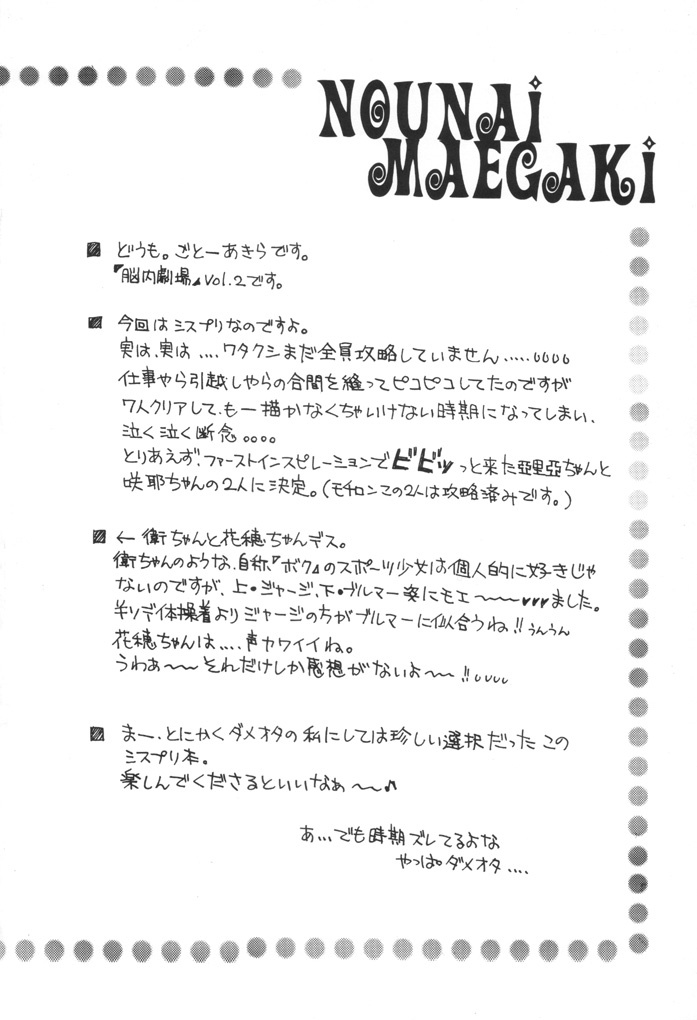 NOUNAi
MAEGAKi
どうも。ごとーあきらです。
『脳内劇場』vol.2です。
今回はミスプリなのですよ。
実は、実は....ワタクシまだ全員攻略していません.....
仕事やら引越しやらの合間を縫ってピコピコしてたのですが
7人クリアして、もー描かなくちゃいけない時期になってしまい、
泣く泣く断念。。。。
とりあえず、ファーストインスピレーションでビビッっと来た亞里亞ちゃんと
咲耶ちゃんの2人に決定。(モチロンこの2人は攻略済みです。)
← 衛ちゃんと花穂ちゃんデス。
衛ちゃんのような、自称『ボク』のスポーツ少女は個人的に好きじゃ
ないのですが、上・ジャージ、下・ブルマー姿にモエ〜〜〜♥♥♥ました。
半ソデ体操着よりジャージの方がブルマーに似合うね!!うんうん
花穂ちゃんは....声カワイイね。
うわぁ〜〜それだけしか感想がないよ〜〜!!
まー、とにかくダメオタの私にしては珍しい選択だったこの
ミスプリ本。
楽しんでくださるといいなぁ〜〜♪
あ...でも時期ズレてるよな
やっぱダメオタ....